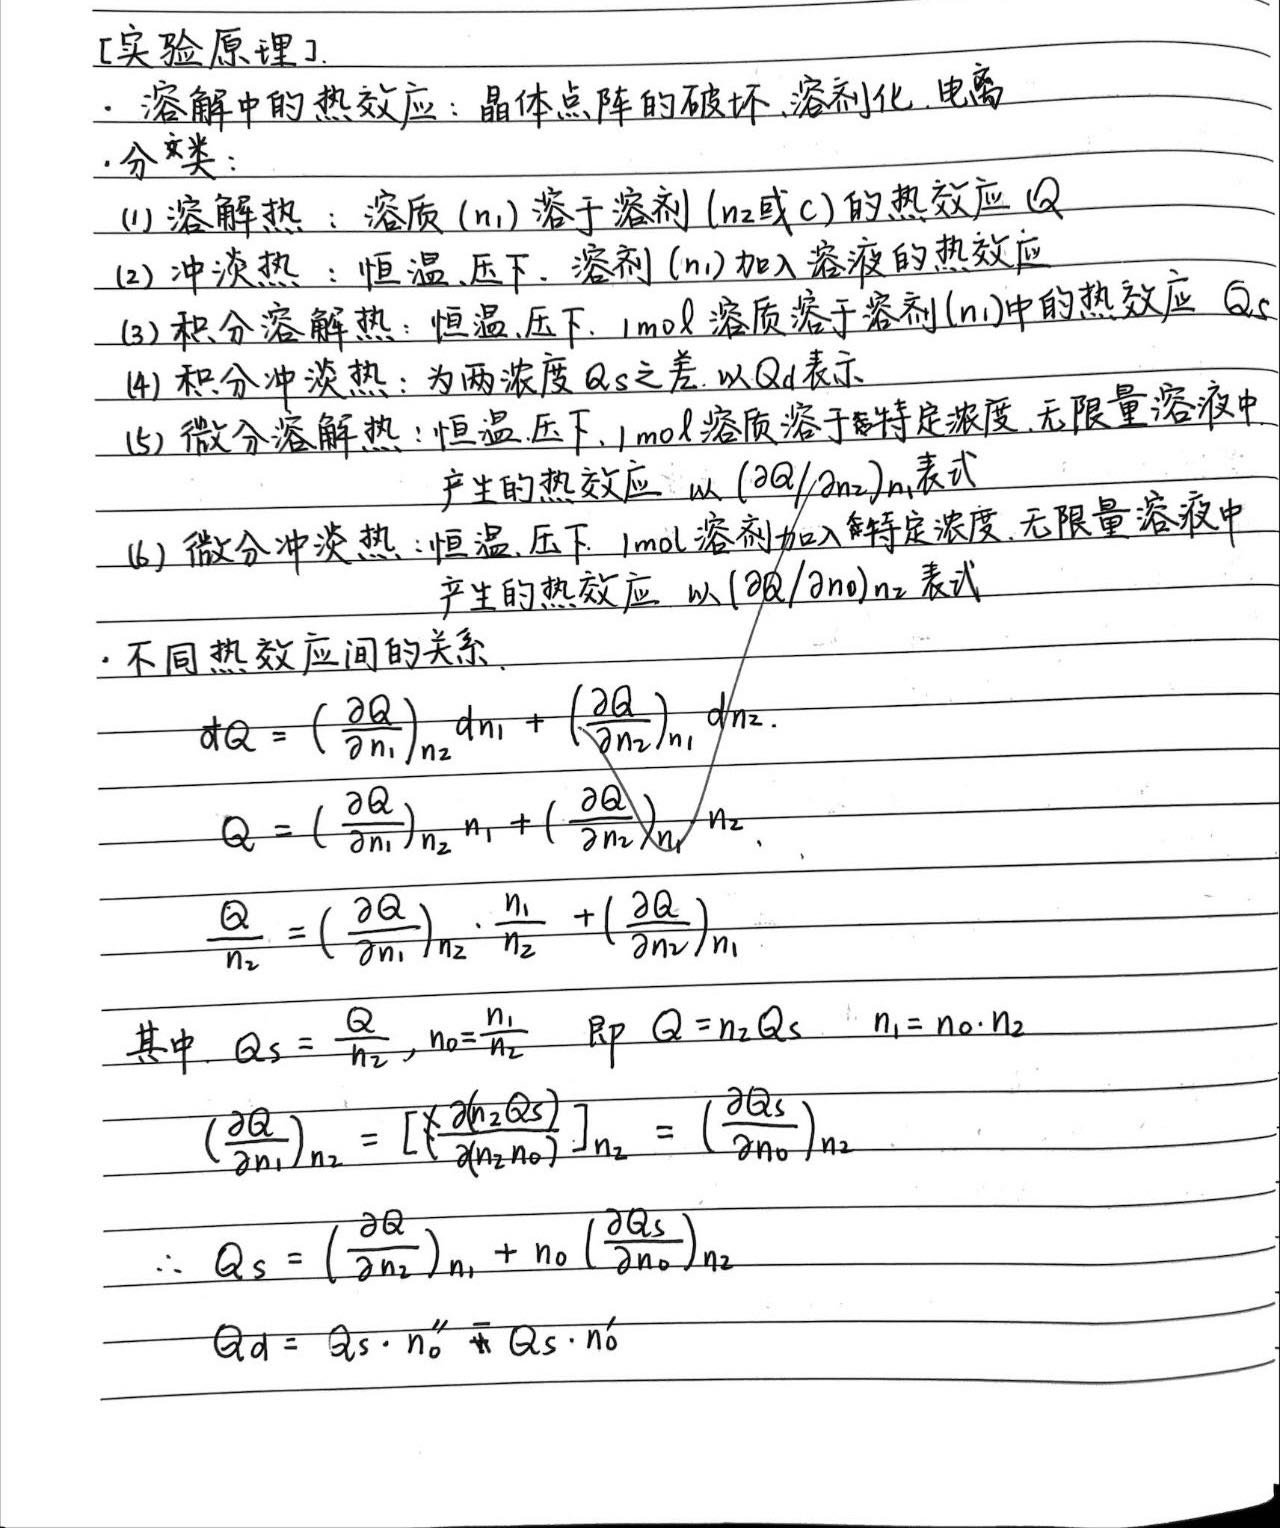 [实验原理].
· 溶解中的热效应：晶体点阵的破坏、溶剂化、电离
· 分类：
(1) 溶解热：溶质(n₁)溶于溶剂(n₂或c)的热效应 Q
(2) 冲淡热：恒温、压下、溶剂(n₁)加入溶液的热效应
(3) 积分溶解热：恒温、压下、1mol溶质溶于溶剂(n₁)中的热效应 Qs
(4) 积分冲淡热：为两浓度Qs之差、以Qd表示
(5) 微分溶解热：恒温、压下、1mol溶质溶于特定浓度、无限量溶液中
产生的热效应 以(∂Q/∂n₂)n₁表式
(6) 微分冲淡热：恒温、压下、1mol溶剂加入特定浓度、无限量溶液中
产生的热效应 以(∂Q/∂n₀)n₂表式
· 不同热效应间的关系.
dQ = (∂Q/∂n₁)n₂ dn₁ + (∂Q/∂n₂)n₁ dn₂.
Q = (∂Q/∂n₁)n₂ n₁ + (∂Q/∂n₂)n₁ · n₂.
Q/n₂ = (∂Q/∂n₁)n₂ · n₁/n₂ + (∂Q/∂n₂)n₁
其中. Qs = Q/n₂, n₀ = n₁/n₂ 即 Q = n₂Qs n₁ = n₀·n₂
(∂Q/∂n₁)n₂ = [∂(n₂Qs)/∂(n₂n₀)]n₂ = (∂Qs/∂n₀)n₂
∴ Qs = (∂Q/∂n₂)n₁ + n₀(∂Qs/∂n₀)n₂
Qd = Qs·n₀″ - Qs·n₀′